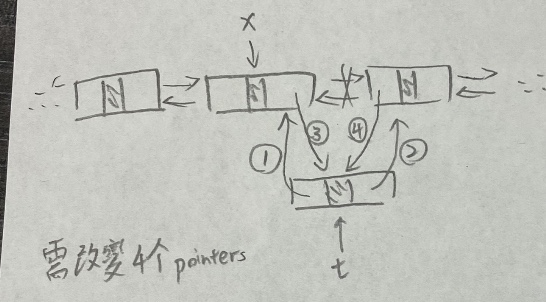 x
③ ④
① ②
t
需改變4个pointers